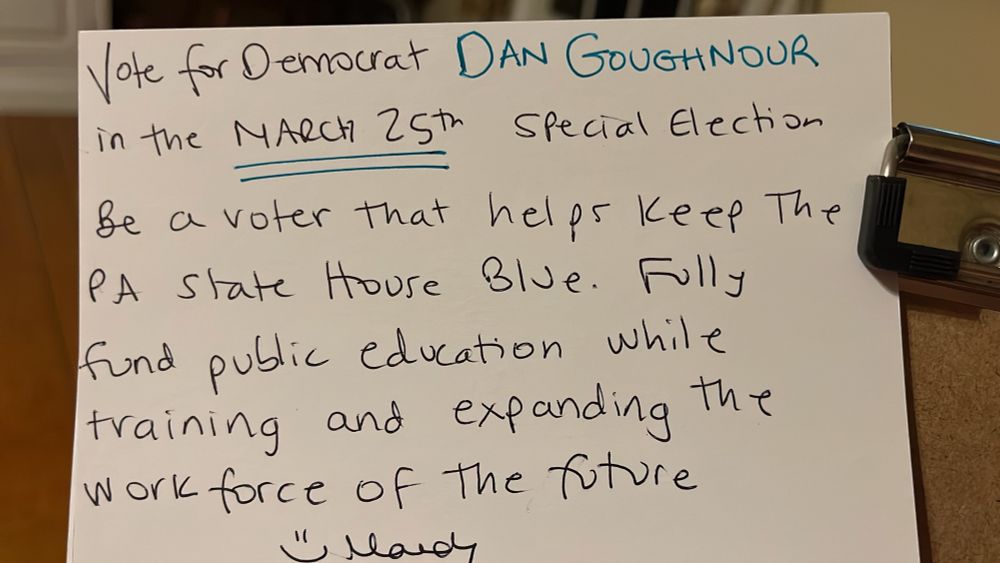 Vote for Democrat DAN GOUGHNOUR
in the MARCH 25th Special Election
Be a voter that helps keep The
PA State House Blue. Fully
fund public education while
training and expanding the
workforce of the future